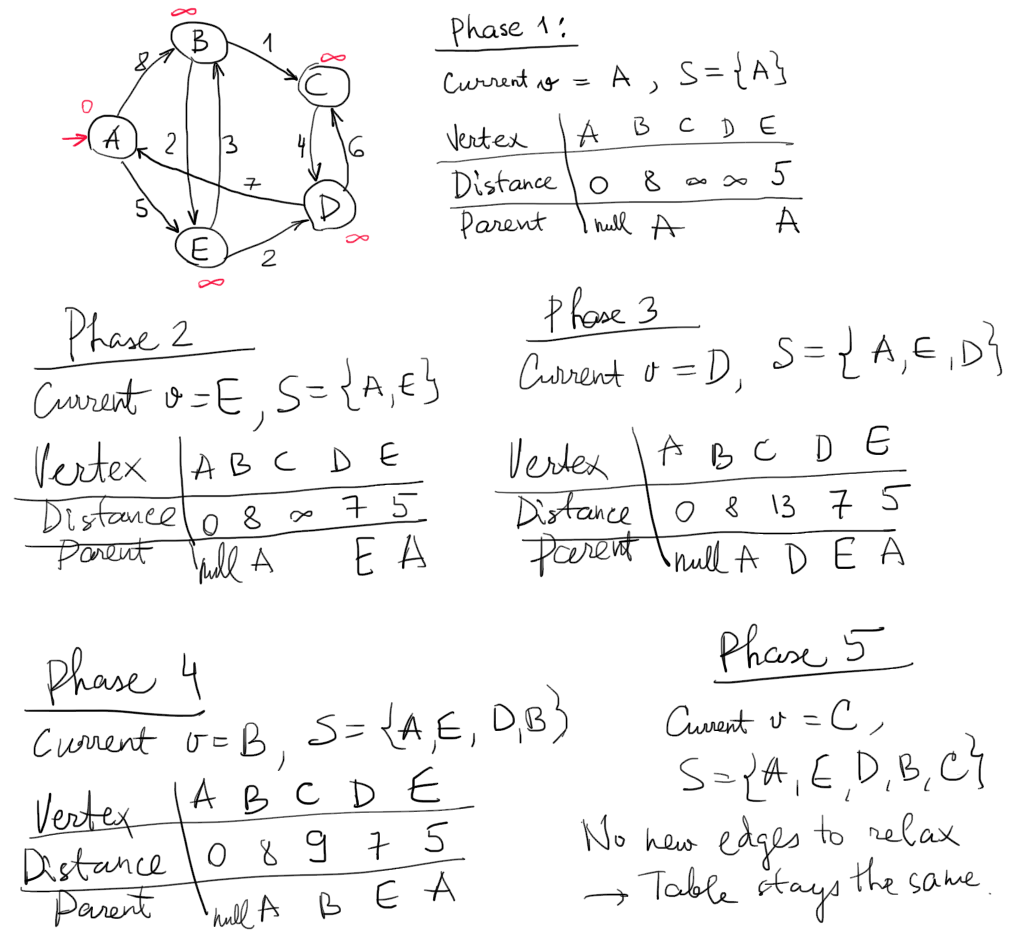 ∞
B
8
1
∞
C
0
A
2
3
4
6
7
5
D
E
2
∞
∞
Phase 1:
Current v = A, S={A}
Vertex A B C D E
Distance 0 8 ∞ ∞ 5
Parent null A A
Phase 2
Current v=E, S={A,E}
Vertex A B C D E
Distance 0 8 ∞ 7 5
Parent null A E A
Phase 3
Current v=D, S={A,E,D}
Vertex A B C D E
Distance 0 8 13 7 5
Parent null A D E A
Phase 4
Current v=B, S={A,E,D,B}
Vertex A B C D E
Distance 0 8 9 7 5
Parent null A B E A
Phase 5
Current v=C,
S={A,E,D,B,C}
No new edges to relax
→ Table stays the same.